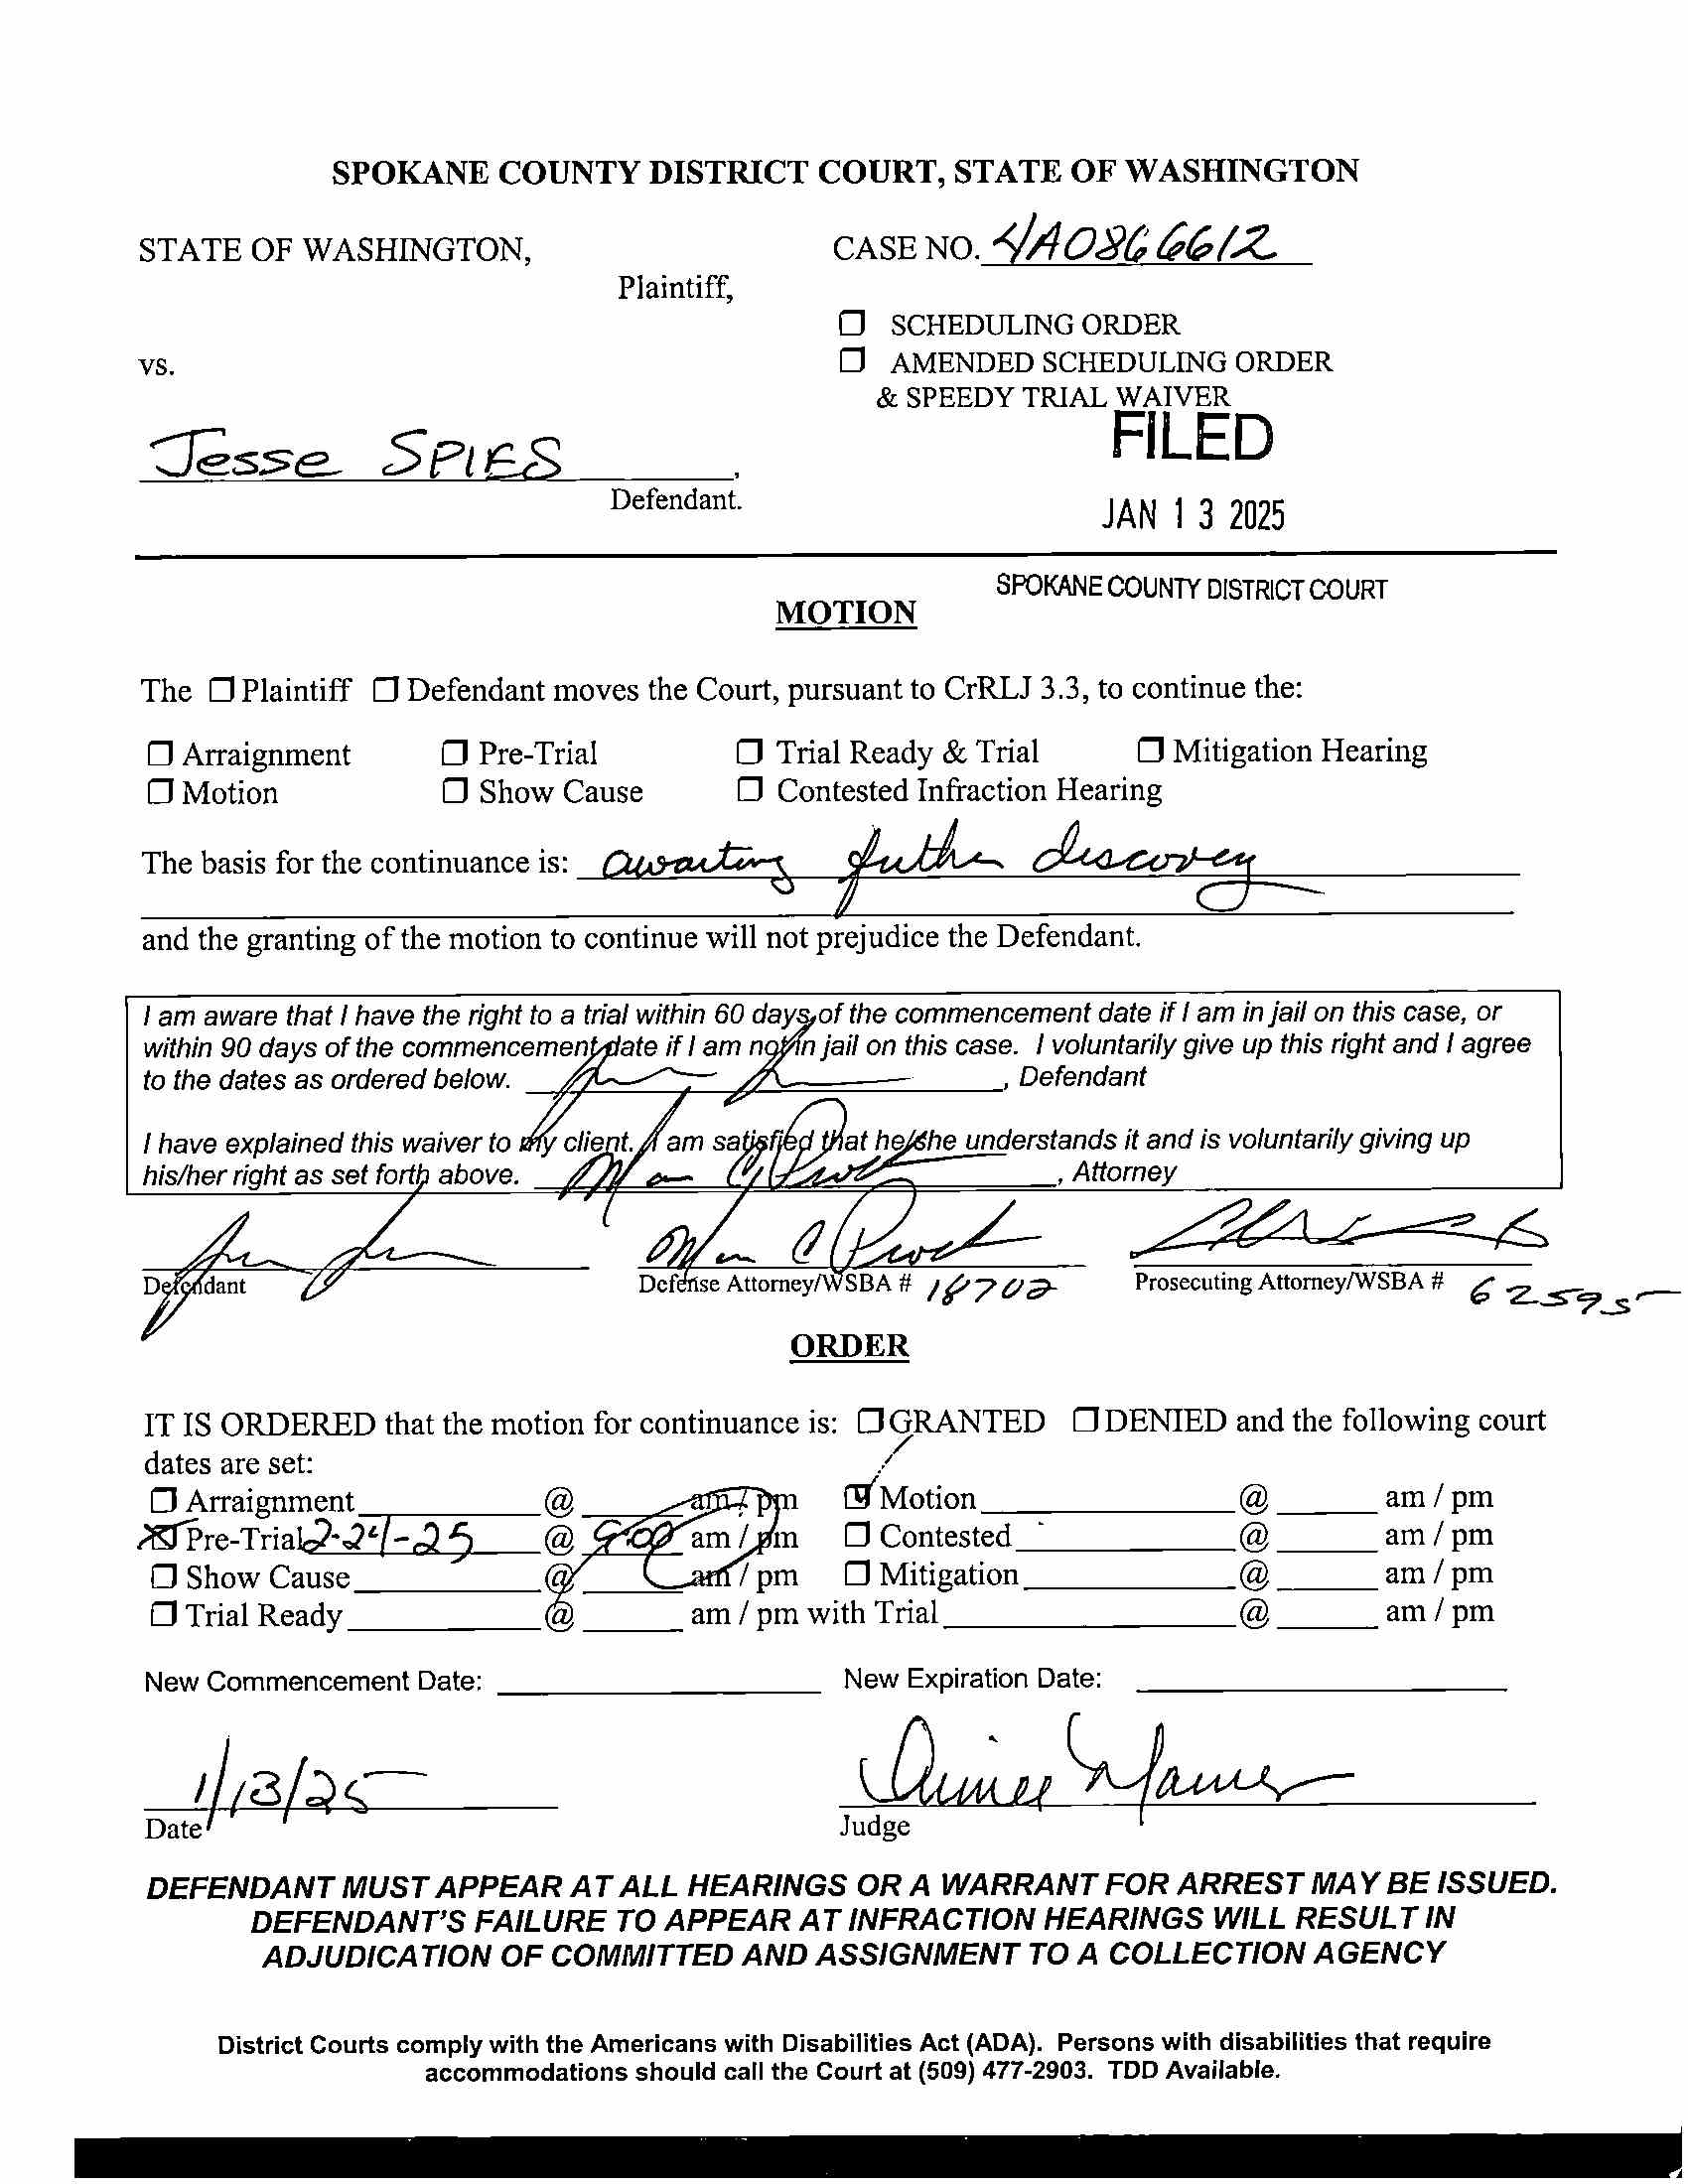 SPOKANE COUNTY DISTRICT COURT, STATE OF WASHINGTON
STATE OF WASHINGTON,
Plaintiff,
CASE NO. 4A0866612
☐ SCHEDULING ORDER
☐ AMENDED SCHEDULING ORDER
& SPEEDY TRIAL WAIVER
vs.
Jesse SPIES,
Defendant.
FILED
JAN 13 2025
SPOKANE COUNTY DISTRICT COURT
MOTION
The ☐ Plaintiff ☐ Defendant moves the Court, pursuant to CrRLJ 3.3, to continue the:
☐ Arraignment ☐ Pre-Trial ☐ Trial Ready & Trial ☐ Mitigation Hearing
☐ Motion ☐ Show Cause ☐ Contested Infraction Hearing
The basis for the continuance is: awaiting futher discovery
and the granting of the motion to continue will not prejudice the Defendant.
I am aware that I have the right to a trial within 60 days of the commencement date if I am in jail on this case, or
within 90 days of the commencement date if I am not in jail on this case. I voluntarily give up this right and I agree
to the dates as ordered below. , Defendant
I have explained this waiver to my client. I am satisfied that he/she understands it and is voluntarily giving up
his/her right as set forth above. , Attorney
Defendant Defense Attorney/WSBA # 18702 Prosecuting Attorney/WSBA # 62595
ORDER
IT IS ORDERED that the motion for continuance is: ☐ GRANTED ☐ DENIED and the following court
dates are set:
☐ Arraignment @ am / pm ☑ Motion @ am / pm
☒ Pre-Trial 2-24-25 @ 9:00 am / pm ☐ Contested @ am / pm
☐ Show Cause @ am / pm ☐ Mitigation @ am / pm
☐ Trial Ready @ am / pm with Trial @ am / pm
New Commencement Date: New Expiration Date:
1/13/25
Date Judge
DEFENDANT MUST APPEAR AT ALL HEARINGS OR A WARRANT FOR ARREST MAY BE ISSUED.
DEFENDANT'S FAILURE TO APPEAR AT INFRACTION HEARINGS WILL RESULT IN
ADJUDICATION OF COMMITTED AND ASSIGNMENT TO A COLLECTION AGENCY
District Courts comply with the Americans with Disabilities Act (ADA). Persons with disabilities that require
accommodations should call the Court at (509) 477-2903. TDD Available.